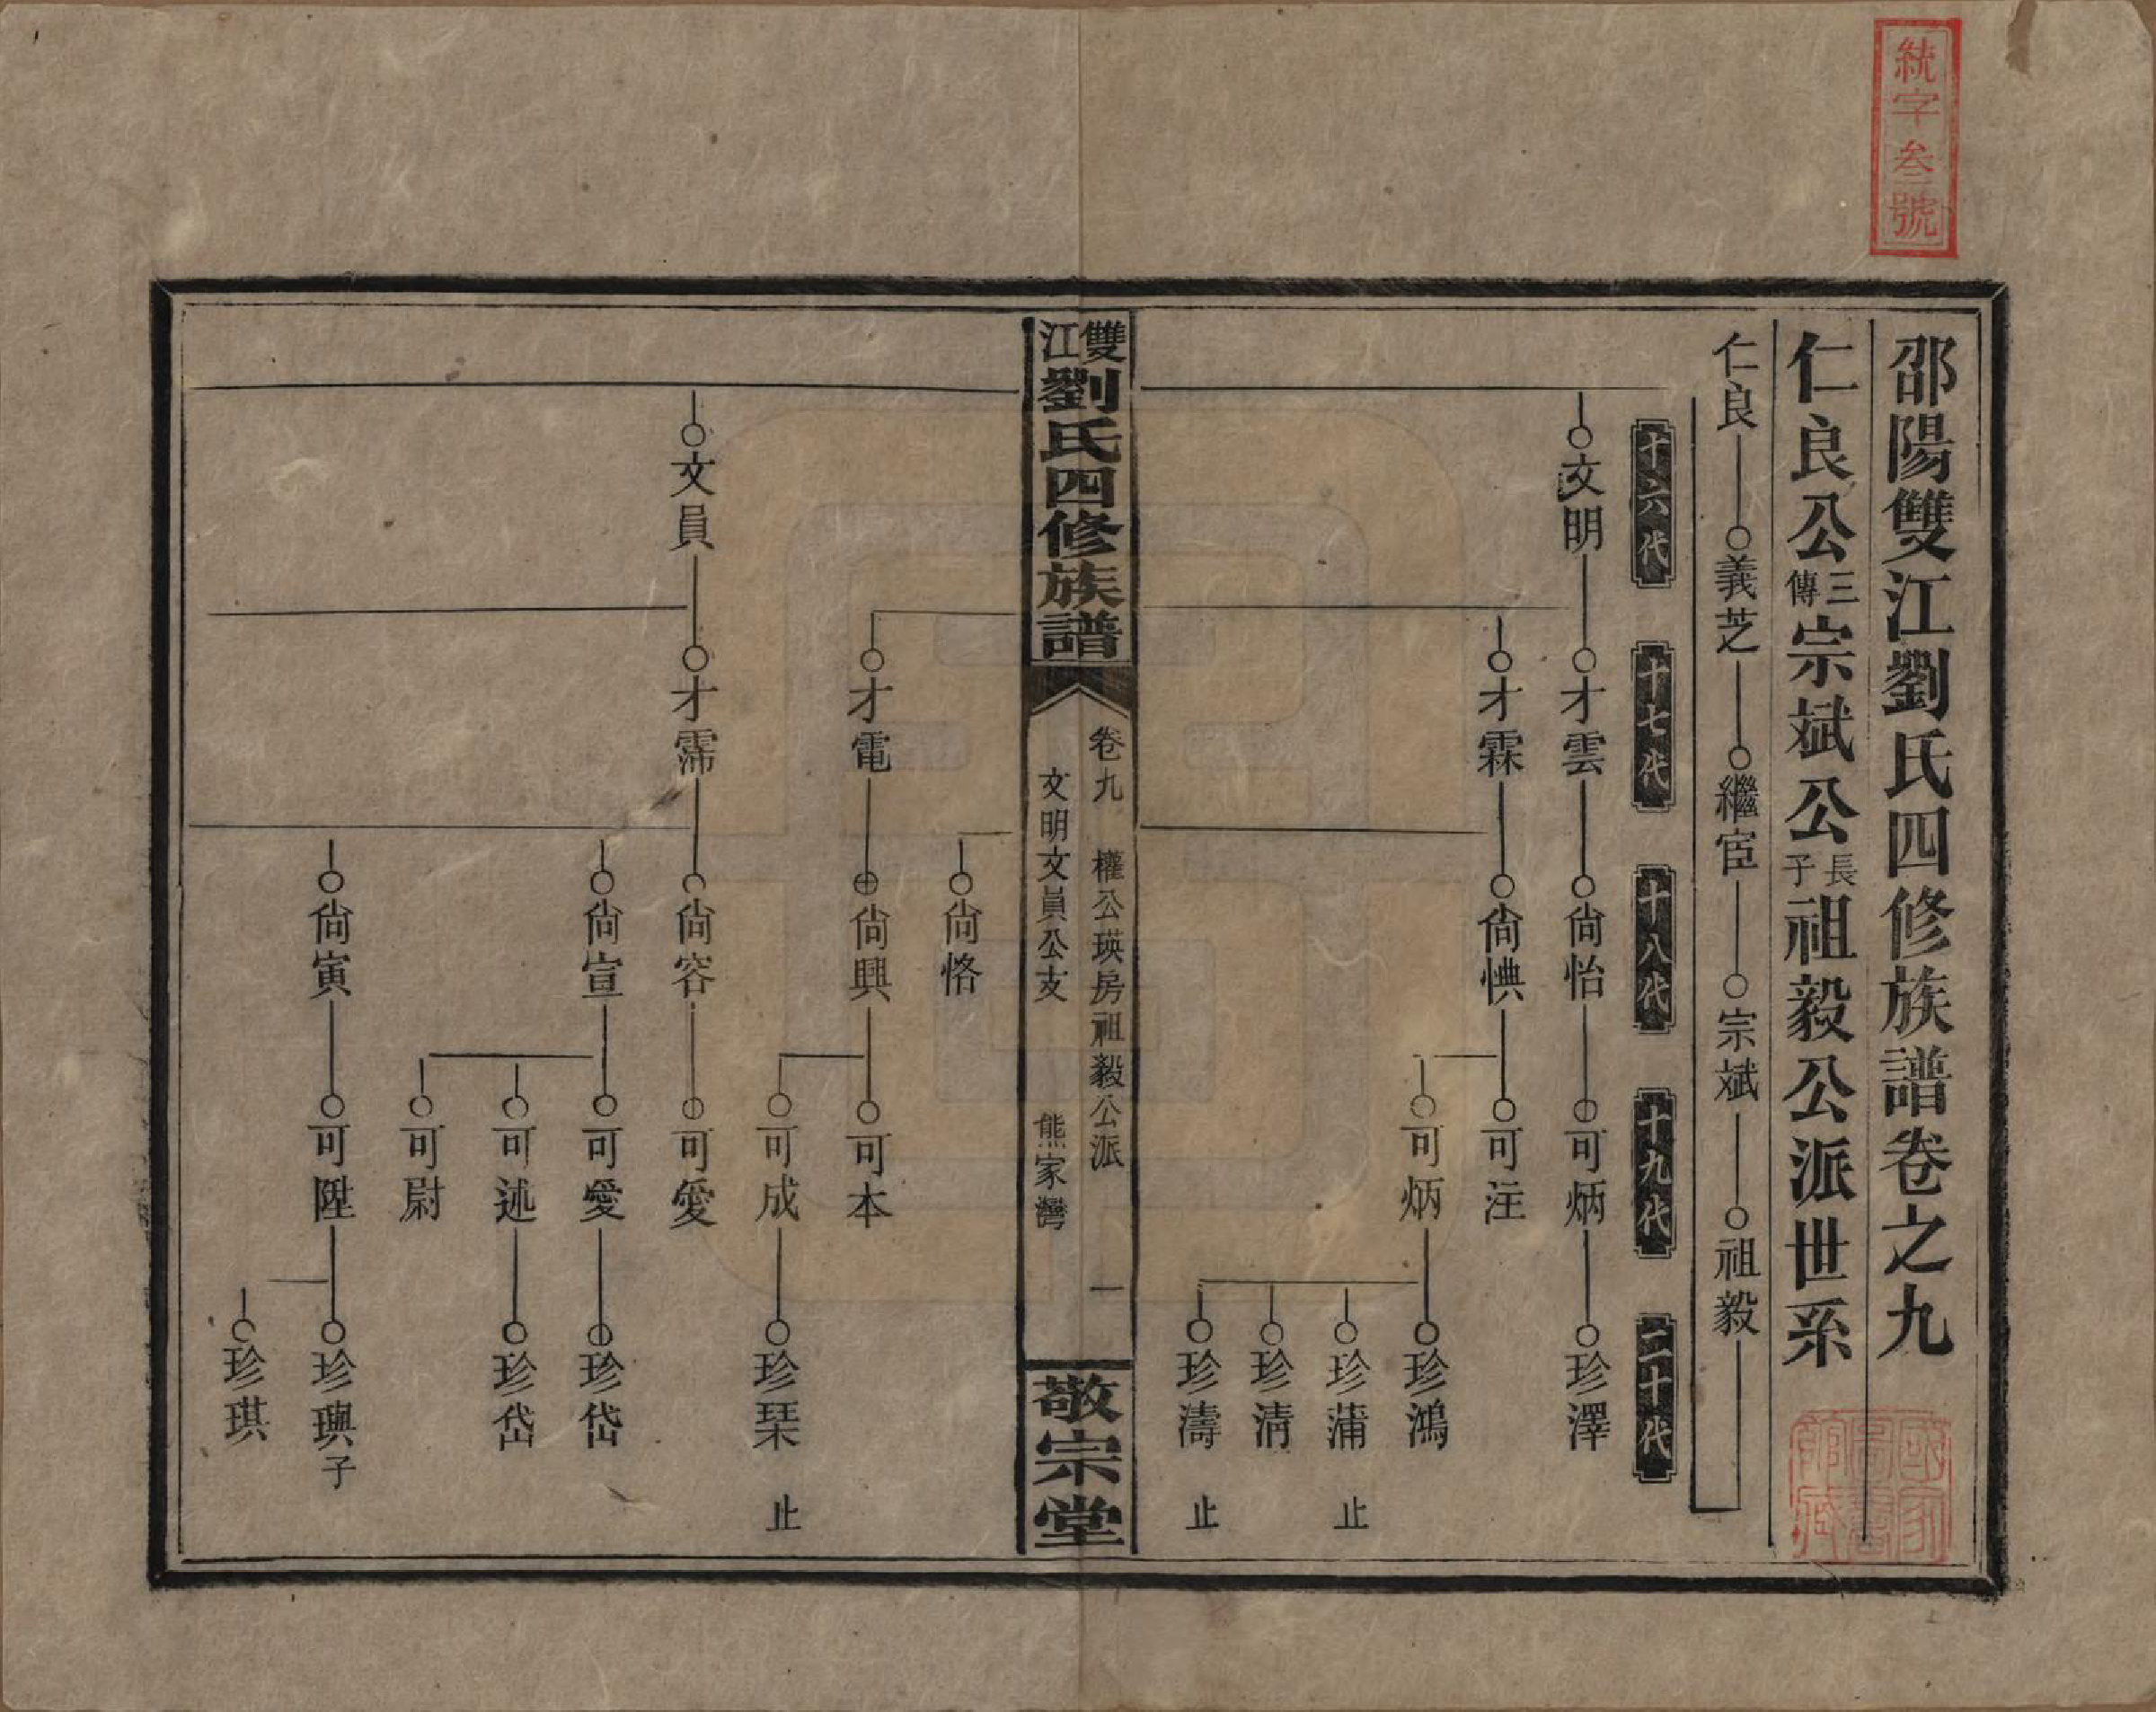 統字叁號
邵陽雙江劉氏四修族譜卷之九
仁良公三傳宗斌公長子祖毅公派世系
仁良 義芝 繼宦 宗斌 祖毅
十六代 十七代 十八代 十九代 二十代
文明 才雲 尙怡 可炳 珍澤
才霖 尙㥏 可注
可炳 珍鴻
珍蒲 止
珍清
珍濤 止
雙江劉氏四修族譜
卷九 權公瑛房祖毅公派 一
文明文員公支 熊家灣
敬宗堂
尙恪
才電 尙興 可本
可成 珍琹 止
文員 才霈 尙容 可愛
尙宣 可愛 珍岱
可述 珍岱
可尉
尙寅 可陞 珍璵子
珍琪
國家圖書館藏